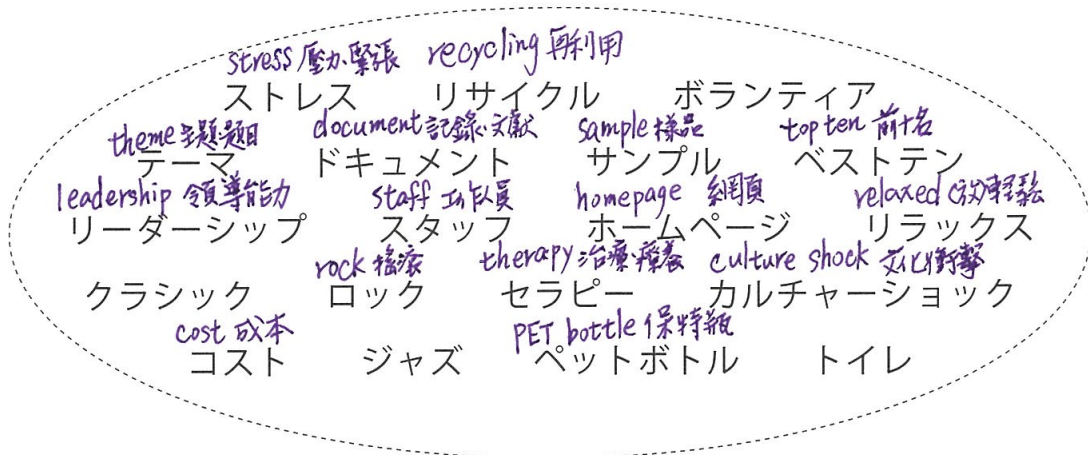 stress 壓力、緊張 recycling 再利用
ストレス リサイクル ボランティア
theme 主題、題目 document 記錄、文獻 sample 樣品 top ten 前十名
テーマ ドキュメント サンプル ベストテン
leadership 領導能力 staff 工作員 homepage 網頁 relaxed (放)輕鬆
リーダーシップ スタッフ ホームページ リラックス
rock 搖滾 therapy 治療、療養 culture shock 文化衝擊
クラシック ロック セラピー カルチャーショック
cost 成本 PET bottle 保特瓶
コスト ジャズ ペットボトル トイレ